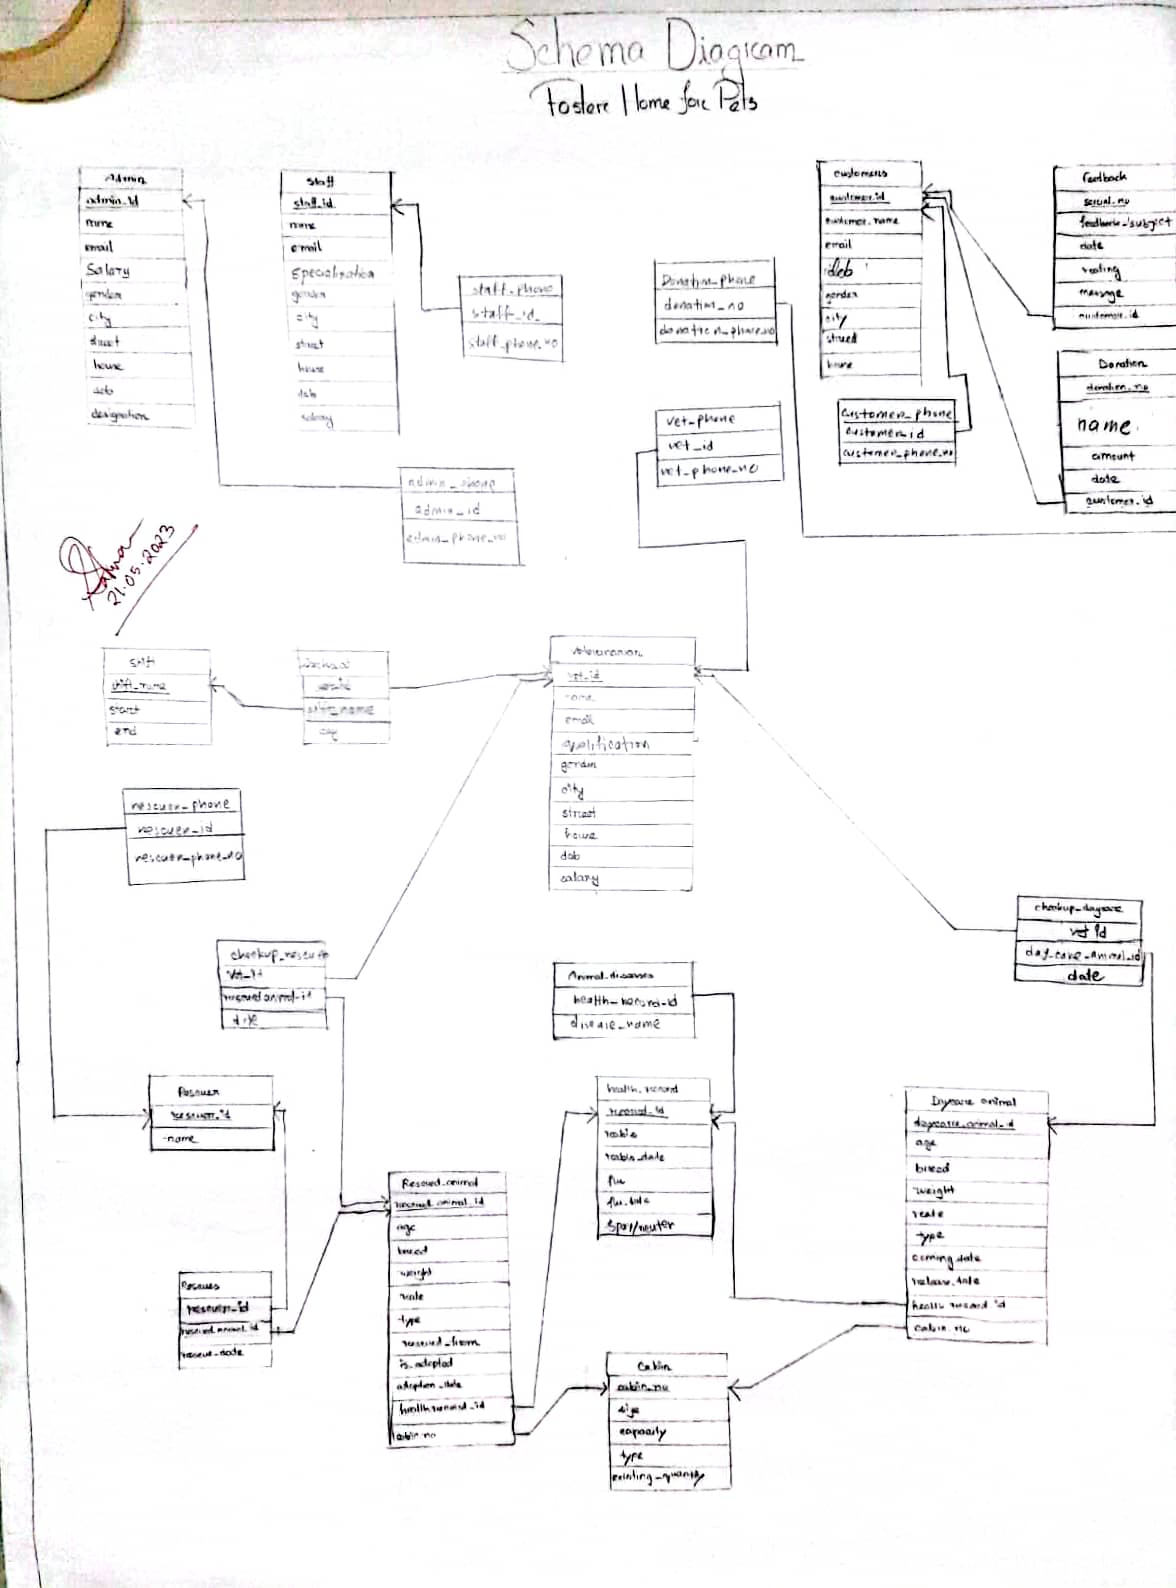 Schema Diagram
Fostere Home fore Pets
Admin
admin_id
name
email
Salary
gender
city
street
house
dob
designation
Staff
staff_id
name
email
Specialization
gender
city
street
house
dob
salary
staff_phone
staff_id
staff_phone_no
Donation_phone
donation_no
donation_phone_no
customers
customer_id
customer_name
email
dob
gender
city
street
house
feedback
serial_no
feedback_subject
date
rating
message
customer_id
Donation
donation_no
name
amount
date
customer_id
customer_phone
customer_id
customer_phone_no
vet_phone
vet_id
vet_phone_no
admin_phone
admin_id
admin_phone_no
21.05.2023
shift
shift_name
start
end
vet_id
shift_name
day
veterinarian
vet_id
name
email
qualification
gender
city
street
house
dob
salary
rescuer_phone
rescuer_id
rescuer_phone_no
checkup_rescue
vet_id
rescued animal_id
date
Animal_diseases
health_record_id
disease_name
checkup_daycare
vet_id
day_care_animal_id
date
Rescuer
rescuer_id
name
health_record
record_id
rabis
rabis_date
flu
flu_date
Spay/neuter
Daycare animal
daycare_animal_id
age
breed
weight
type
coming_date
release_date
health_record_id
cabin_no
Rescued_animal
rescued_animal_id
age
breed
weight
type
rescued_from
is_adopted
adoption_date
health record_id
cabin_no
Rescues
rescuer_id
rescued_animal_id
rescue_date
Cabin
cabin_no
size
capacity
type
existing_quantity